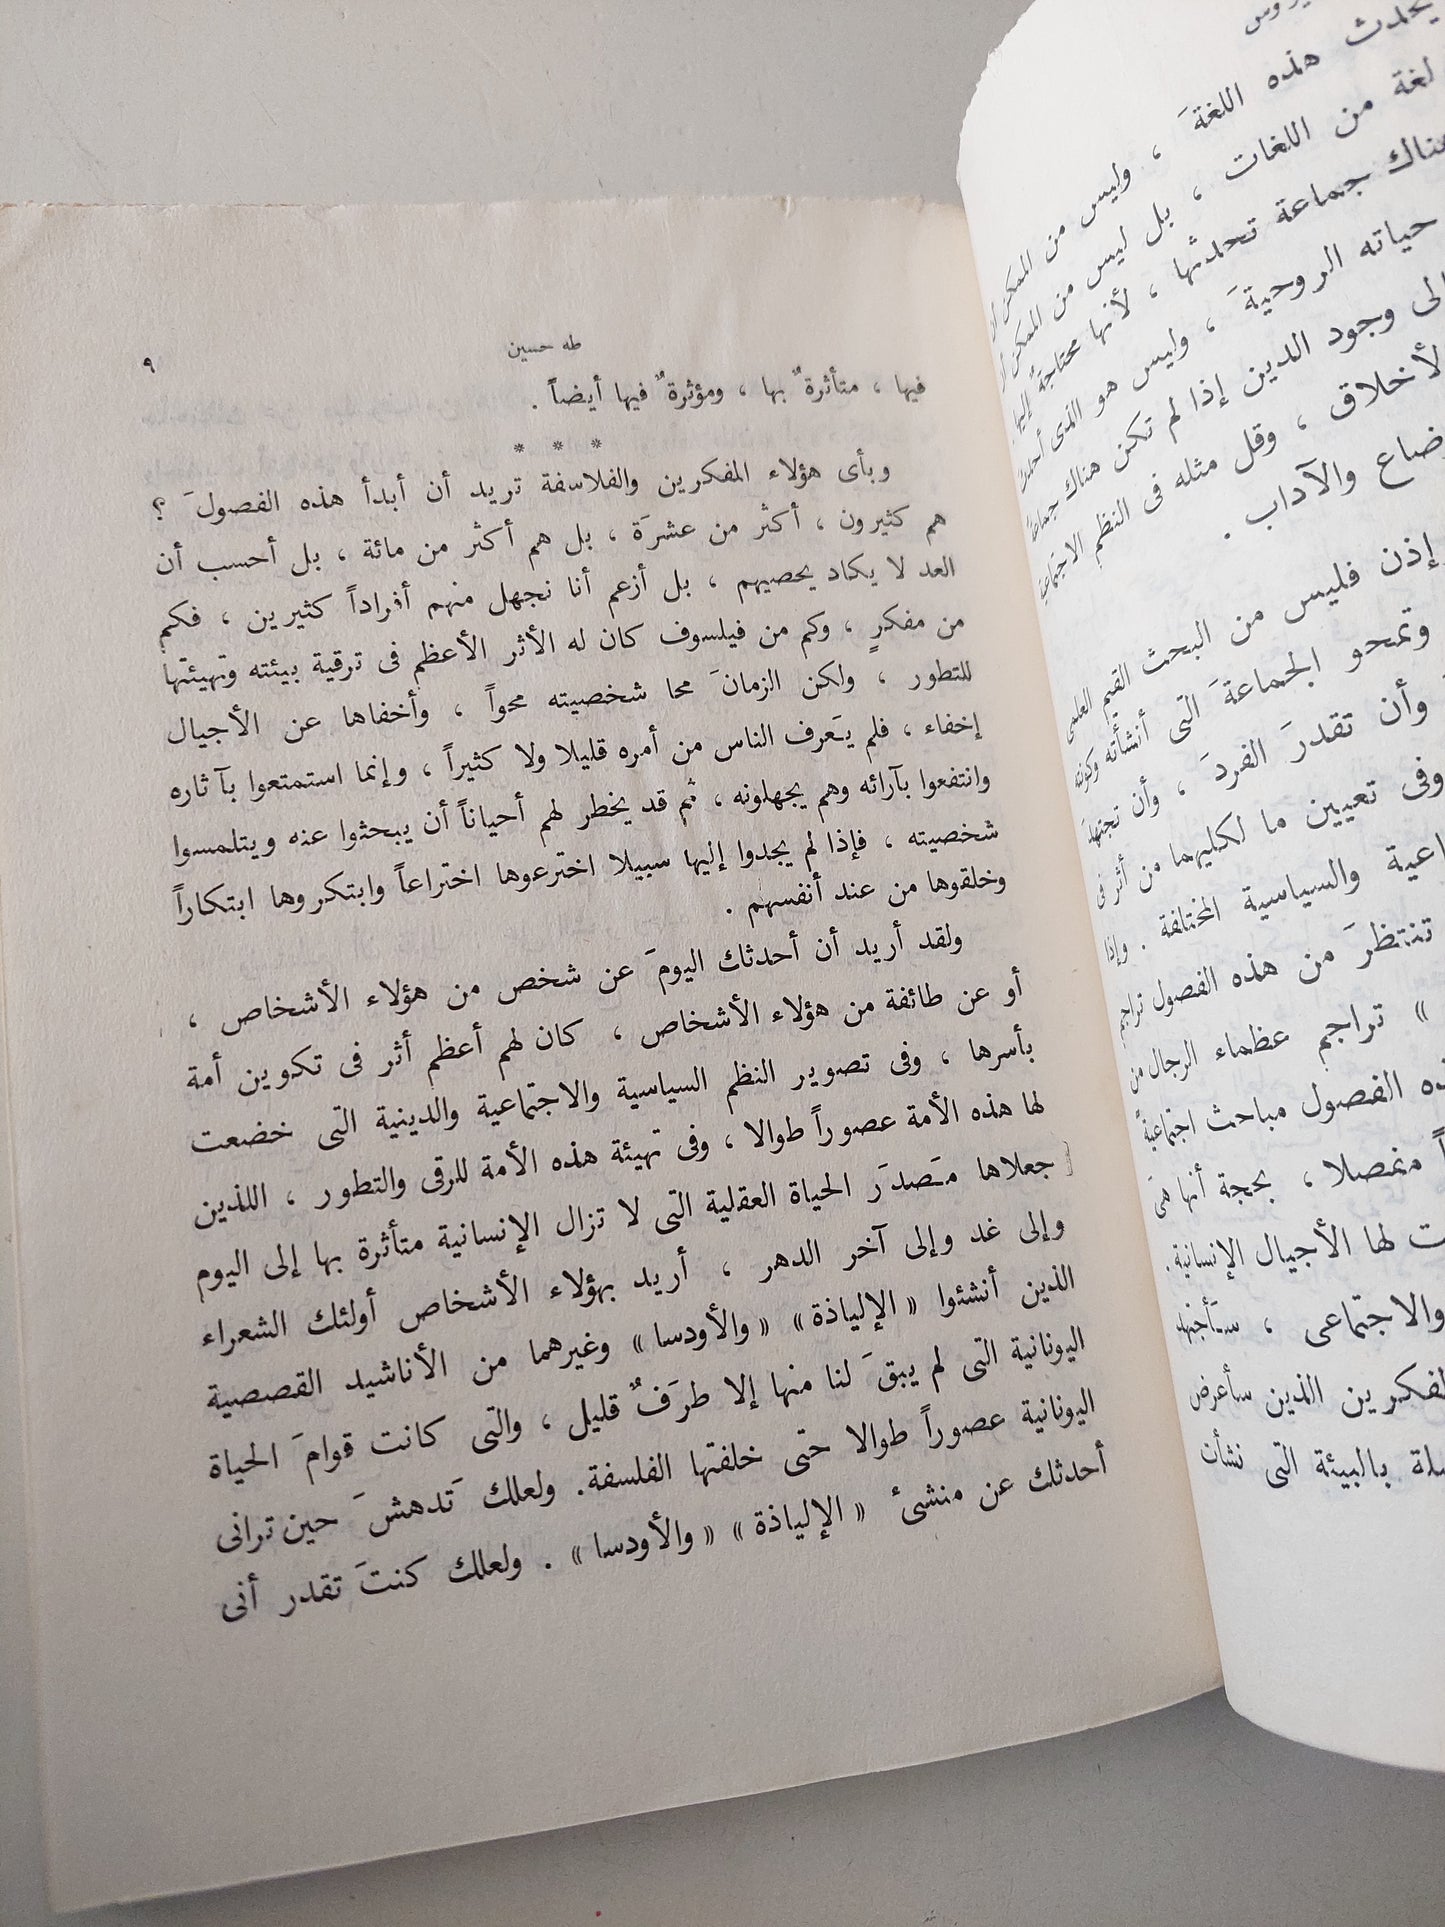 يروس
يحدث هذه اللغةَ ، وليس من الممكن
لغة من اللغات ، بل ليس من الممكن
هناك جماعة تحدثها ، لأنها محتاجة إليها .
حياته الروحيةَ ، وليس هو الذى أحدث
إلى وجود الدين إذا لم تكن هناك جماعة
الأخلاق ، وقل مثله فى النظم الاجتماعية
والآداب .
وإذن فليس من البحث القيم العلمى
وتمحو الجماعةَ التى أنشأته وكونته
وأن تقدرَ الفردَ ، وأن تجتهدَ
وفى تعيين ما لكليهما من أثر فى
والسياسية المختلفة . وإذا
تنتظرَ من هذه الفصول تراجم
» تراجم عظماء الرجال من
الفصول مباحث اجتماعيةً
منفصلا ، بحجة أنها هى
لها الأجيال الإنسانية .
والاجتماعى ، سأجتهد
المفكرين الذين سأعرض
بالبيئة التى نشأت
طه حسين ٩
فيها ، متأثرةٌ بها ، ومؤثرةٌ فيها أيضاً .
* * *
وبأى هؤلاء المفكرين والفلاسفة تريد أن أبدأ هذه الفصولَ ؟
هم كثيرون ، أكثر من عشرَة ، بل هم أكثر من مائة ، بل أحسب أن
العد لا يكاد يحصيهم ، بل أزعم أنا نجهل منهم أفراداً كثيرين ، فكم
من مفكرٍ ، وكم من فيلسوف كان له الأثر الأعظم فى ترقية بيئته وتهيئتها
للتطور ، ولكن الزمانَ محا شخصيته محواً ، وأخفاها عن الأجيال
إخفاء ، فلم يَعرف الناس من أمره قليلا ولا كثيراً ، وإنما استمتعوا بآثاره
وانتفعوا بآرائه وهم يجهلونه ، ثم قد يخطر لهم أحياناً أن يبحثوا عنه ويتلمسوا
شخصيته ، فإذا لم يجدوا إليها سبيلا اخترعوها اختراعاً وابتكروها ابتكاراً
وخلقوها من عند أنفسهم .
ولقد أريد أن أحدثك اليومَ عن شخص من هؤلاء الأشخاص ،
أو عن طائفة من هؤلاء الأشخاص ، كان لهم أعظم أثر فى تكوين أمة
بأسرها ، وفى تصوير النظم السياسية والاجتماعية والدينية التى خضعت
لها هذه الأمة عصوراً طوالا ، وفى تهيئة هذه الأمة للرقى والتطور ، اللذين
جعلاها مَصدَر الحياة العقلية التى لا تزال الإنسانية متأثرة بها إلى اليوم
وإلى غد وإلى آخر الدهر ، أريد بهؤلاء الأشخاص أولئك الشعراء
الذين أنشئوا « الإلياذة » « والأودسا » وغيرهما من الأناشيد القصصية
اليونانية التى لم يبقَ لنا منها إلا طرَفٌ قليل ، والتى كانت قوامَ الحياة
اليونانية عصوراً طوالا حتى خلفتها الفلسفة. ولعلك تَدهشَ حين ترانى
أحدثك عن منشىء « الإلياذة » « والأودسا » . ولعلك كنتَ تقدر أنى